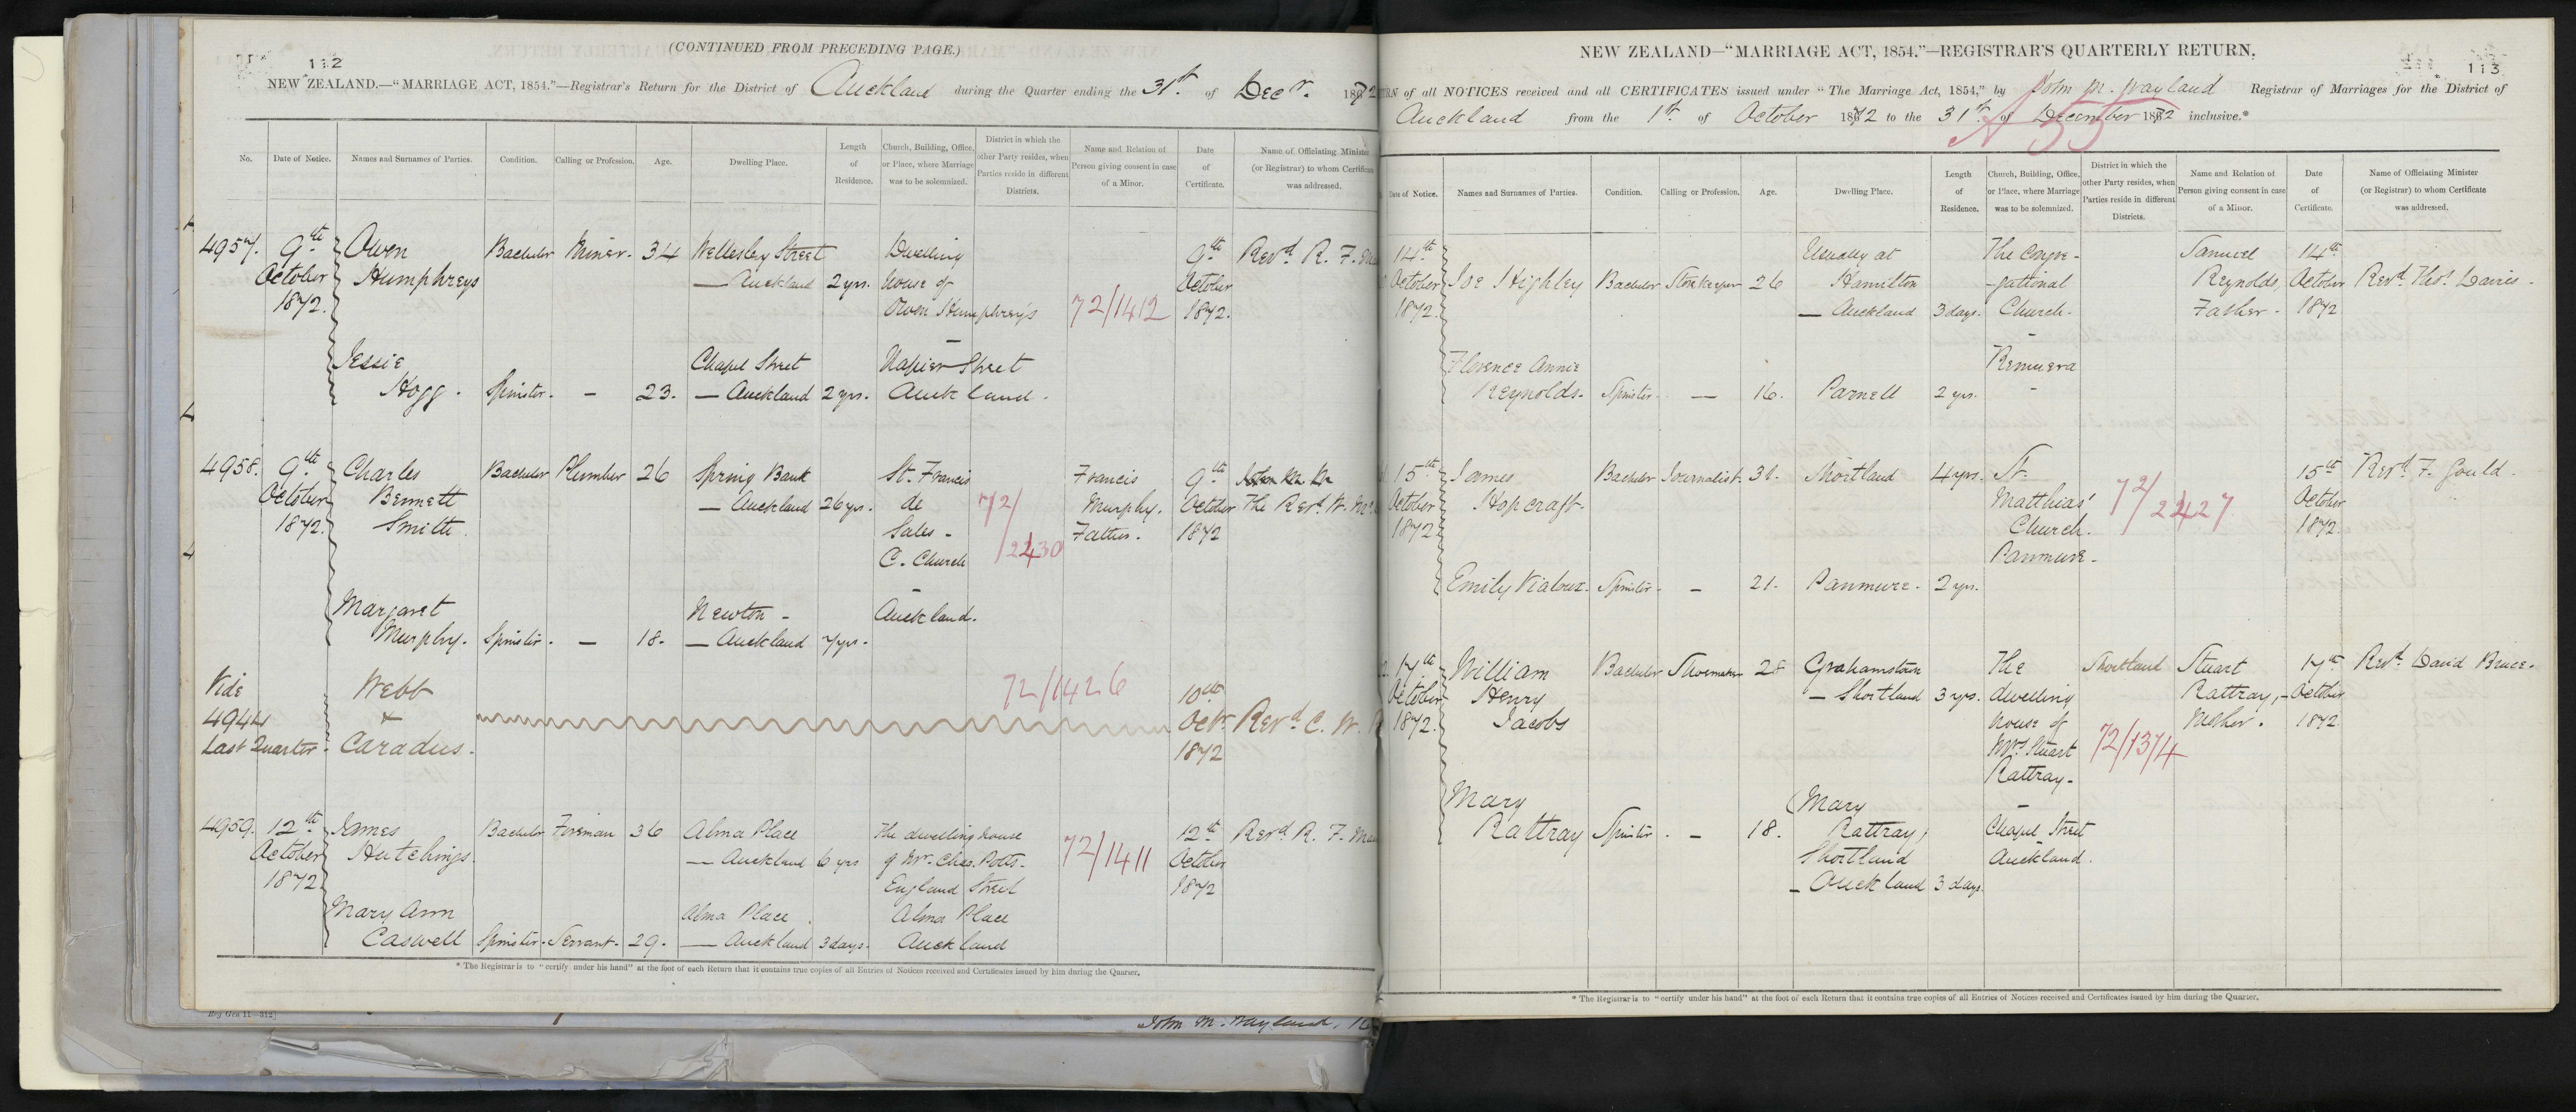 (CONTINUED FROM PRECEDING PAGE.)
112
NEW ZEALAND.—"MARRIAGE ACT, 1854."—Registrar's Return for the District of Auckland during the Quarter ending the 31st. of Decr. 1872
No. Date of Notice. Names and Surnames of Parties. Condition. Calling or Profession. Age. Dwelling Place. Length of Residence. Church, Building, Office, or Place, where Marriage was to be solemnized. District in which the other Party resides, when Parties reside in different Districts. Name and Relation of Person giving consent in case of a Minor. Date of Certificate. Name of Officiating Minister (or Registrar) to whom Certificate was addressed.
4957. 9th Owen Bachelor Miner. 34 Wellesley Street Dwelling 9th Revd. R. F.
October Humphreys — Auckland 2 yrs. house of October
1872. Owen Humphrey's 72/1412 1872.
Jessie Chapel Street Napier Street
Hogg. Spinster. — 23. — Auckland 2 yrs. Auckland.
4958. 9th Charles Bachelor Plumber 26 Spring Bank St. Francis Francis 9th
October Bennett — Auckland 26 yrs. de 72/ Murphy. October The Revd. W.
1872. Smith. Sales - Father. 1872
C. Church /2430
Margaret Newton - Auckland.
Murphy. Spinster. — 18. — Auckland 7 yrs.
Vide Webb 72/1426 10th
4944 + Octr. Revd C. W.
Last Quarter. Caradus. 1872
4959. 12th James Bachelor Fireman 36 Alma Place The dwelling house 12th Revd. R. F.
October Hutchings. — Auckland 6 yrs of Mr. Chas. Potts. 72/1411 October
1872 England Street 1872
Mary Ann Alma Place. Alma Place
Caswell Spinster. Servant. 29. — Auckland 3 days. Auckland
* The Registrar is to "certify under his hand" at the foot of each Return that it contains true copies of all Entries of Notices received and Certificates issued by him during the Quarter.
Reg Gen 11—312]
John M. Wayland,
NEW ZEALAND—"MARRIAGE ACT, 1854."—REGISTRAR'S QUARTERLY RETURN.
113
RN of all NOTICES received and all CERTIFICATES issued under "The Marriage Act, 1854," by John M. Wayland Registrar of Marriages for the District of
Auckland from the 1st. of October 1872 to the 31st. of December 1872 inclusive.*
Date of Notice. Names and Surnames of Parties. Condition. Calling or Profession. Age. Dwelling Place. Length of Residence. Church, Building, Office, or Place, where Marriage was to be solemnized. District in which the other Party resides, when Parties reside in different Districts. Name and Relation of Person giving consent in case of a Minor. Date of Certificate. Name of Officiating Minister (or Registrar) to whom Certificate was addressed.
14th Usually at The Congre- Samuel 14th
October Joe Highley Bachelor Storekeeper 26 Hamilton -gational Reynolds, October Revd. Thos. Davies.
1872. — Auckland 3 days. Church. Father. 1872
Florence Annie Remuera
Reynolds. Spinster. — 16. Parnell 2 yrs.
15th James Bachelor Journalist. 31. Shortland 4 yrs. St. 15th Revd. F. Gould.
October Hopcraft. Matthias' 72/2427 October
1872. Church. 1872.
Panmure.
Emily Vialoux. Spinster. — 21. Panmure. 2 yrs.
17th William Bachelor Shoemaker 28 Grahamstown The Shortland Stuart 17th Revd. David Bruce.
October Henry — Shortland 3 yrs. dwelling Rattray, - October
1872. Jacobs house of Mother. 1872
Mrs. Stuart 72/1374
Rattray.
Mary (Mary
Rattray Spinster. — 18. Rattray) Chapel Street
Shortland Auckland.
— Auckland 3 days.
* The Registrar is to "certify under his hand" at the foot of each Return that it contains true copies of all Entries of Notices received and Certificates issued by him during the Quarter.